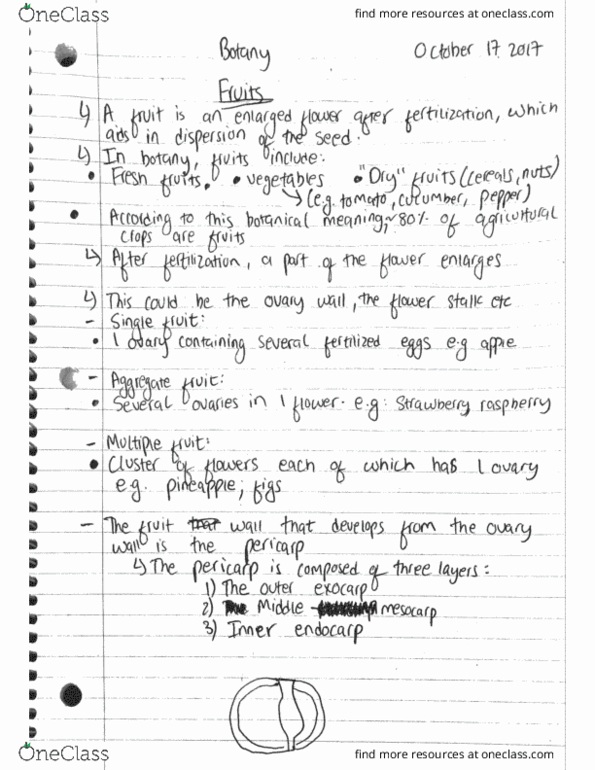 OneClass
find more resources at oneclass.com
Botany
October 17 2017
Fruits
↳ A fruit is an enlarged flower after fertilization, which
aids in dispersion of the seed.
↳ In botany, fruits include:
• Fresh fruits. • vegetables • "Dry" fruits (cereals, nuts)
↳ (e.g. tomato, cucumber, pepper)
• According to this botanical meaning, ~80% of agricultural
crops are fruits
↳ After fertilization, a part of the flower enlarges
↳ This could be the ovary wall, the flower stalk etc
- Single fruit:
• 1 ovary containing several fertilized eggs e.g apple
- Aggregate fruit:
• Several ovaries in 1 flower. e.g: Strawberry raspberry
- Multiple fruit:
• Cluster of flowers each of which has 1 ovary
e.g. pineapple; figs
- The fruit that wall that develops from the ovary
wall is the pericarp
↳ The pericarp is composed of three layers:
1) The outer exocarp
2) Middle mesocarp
3) Inner endocarp
OneClass
find more resources at oneclass.com